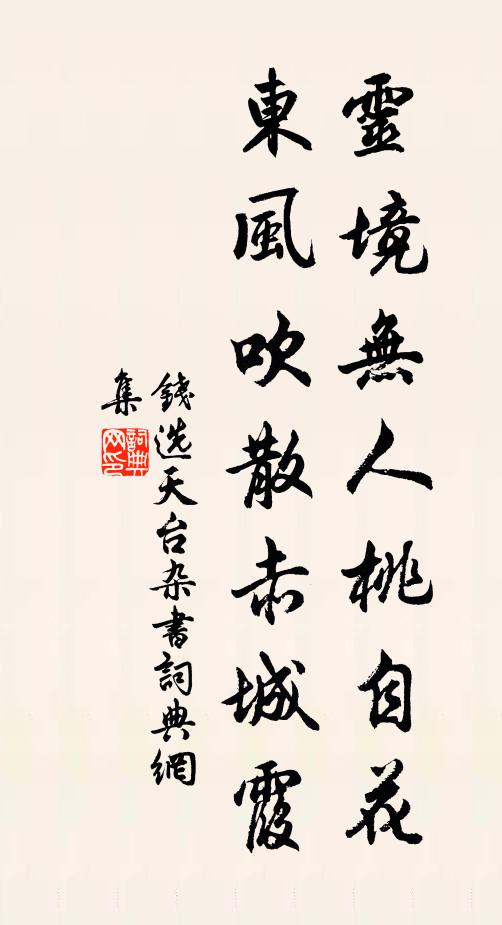 靈境無人桃自花
東風吹散赤城霞
錢选天台杂書詞典網
集
詞典
网印